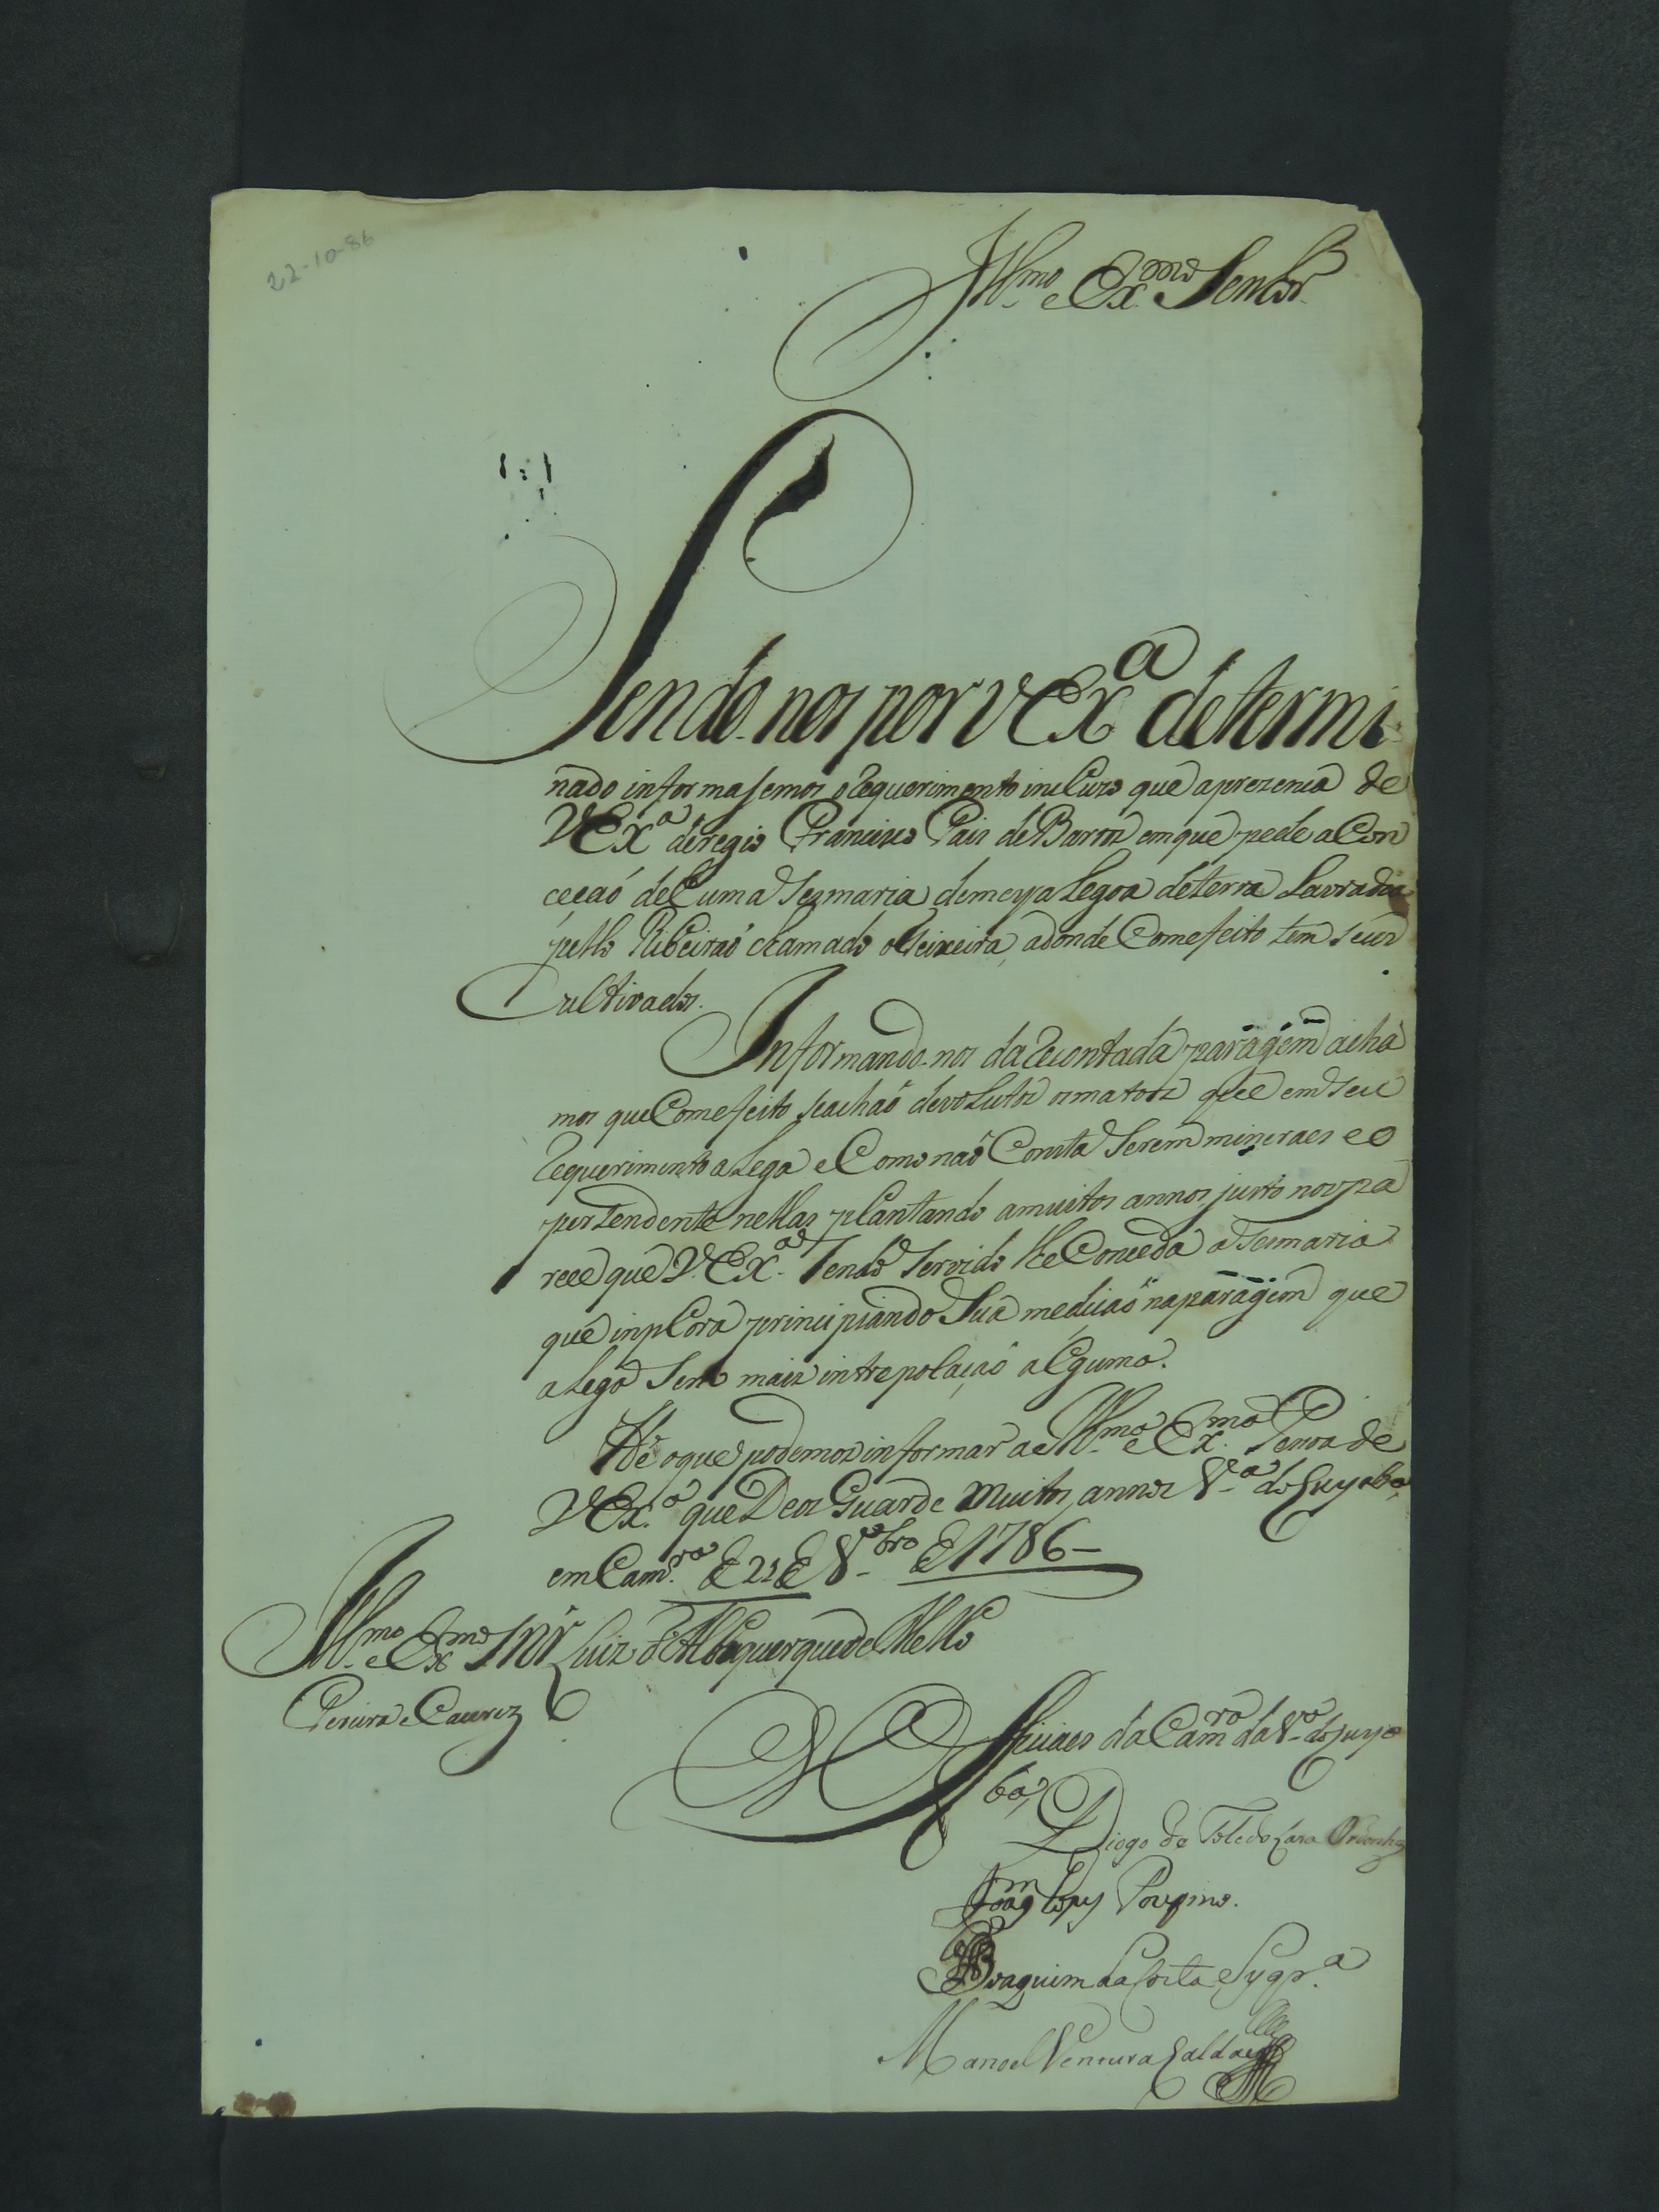 22-10-86
Ill.mo e Ex.mo Senhor
Sendo-nos por VEx.a determi
nado informasemos o Requerimento incluzo que aprezenca de
VEx.a deregio Francisco Pais de Barros em que pede a Con
ceçaó de huma Sesmaria de meya Legoa de terra Lavradia
pello Ribeiraó chamado o Teixeira, adonde Com efeito tem seus
Cultivados.
Informando-nos da Recontada paragem acha
mos que Com efeito se achaó devolutos os matos que em seu
Requerimento alega e Como naó Consta Serem mineraes e o
pertendente nellas plantando a muitos annos, justo nos pa
rece que V.Ex.a Sendo Servido lhe Conceda a Sesmaria
que inplora principiando Sua mediçaó na paragem que
alega Sem mais intrepolaçaó alguma.
Hé o que podemos informar a Ill.ma e Ex.ma Pesoa de
VEx.a que Deos Guarde muitos annos V.a do Cuyaba,
em Cam.ra de 22 de 8.bro de 1786 —
Ill.mo e Ex.mo Snr̃ Luiz de Albuquerque de Mello
Pereira e Caceres
Officiaes da Cam.ra da V.a do Cuya
ba,
Diogo de Toledo Lara Ordonhez
Joaq.m Lopes
Joaquim da Costa Syqr.a
Manoel Ventura Caldas